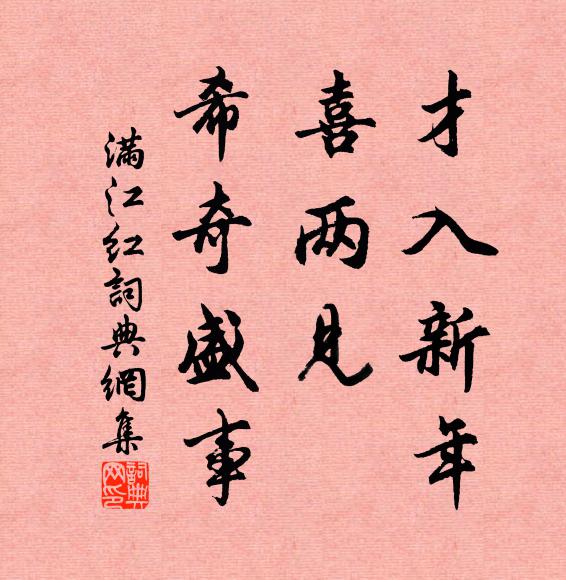 才入新年
喜两见
希奇盛事
满江红詞典網集
詞典网印